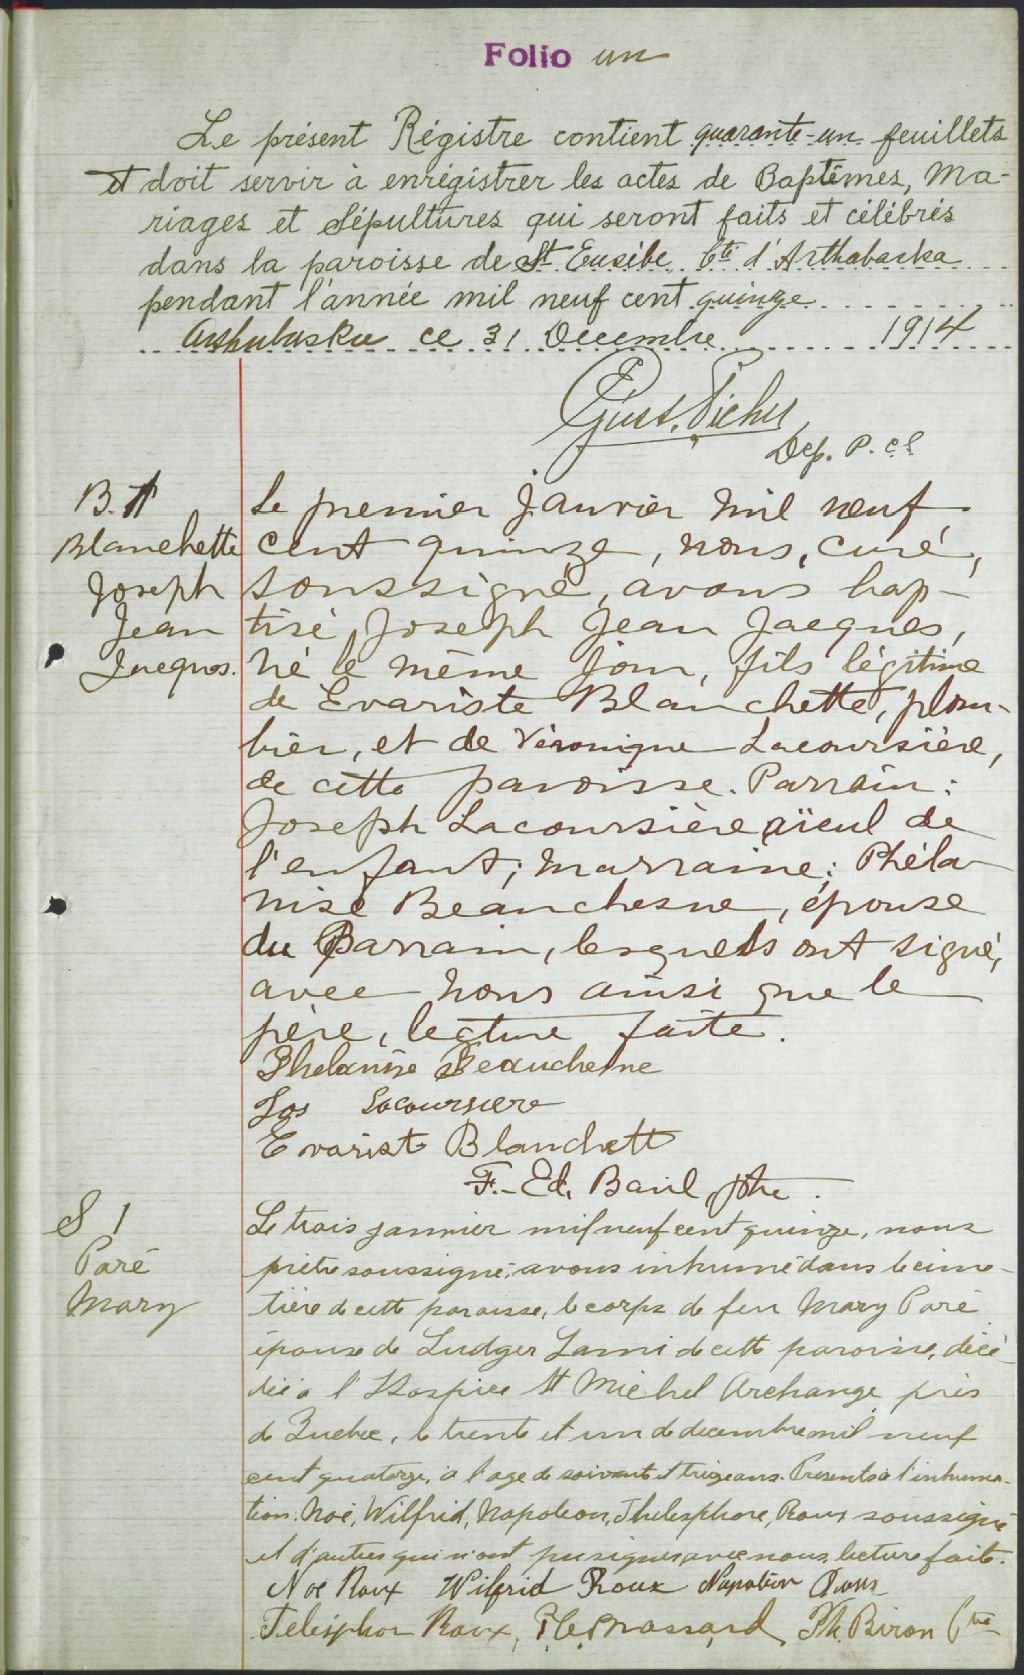 Folio un
Le présent Régistre contient quarante-un feuillets
et doit servir à enrégistrer les actes de Baptêmes, Ma-
riages et Sépultures qui seront faits et célébrés
dans la paroisse de St Eusèbe Cté d'Arthabaska
pendant l'année mil neuf cent quinze
Arthabaska ce 31 Decembre 1914
Dep. P. c s
B. 1
Blanchette
Joseph
Jean
Jacques.
Le premier janvier mil neuf
cent quinze, nous, curé,
soussigné, avons bap-
tisé Joseph Jean Jacques,
né le même jour, fils légitime
de Evariste Blanchette, plom-
bier, et de Véronique Lacoursière,
de cette paroisse. Parrain:
Joseph Lacoursière aïeul de
l'enfant; marraine: Phéla-
nise Beauchesne, épouse
du Parrain, lesquels ont signé,
avec nous ainsi que le
père, lecture faite.
Phelanise Beauchesne
Jos Lacoursiere
Evariste Blanchett
F.-Ed. Baril, ptre.
S 1
Paré
Mary
Le trois janvier mil neuf cent quinze, nous
prêtre soussigné, avons inhumé dans le cime-
tière de cette paroisse, le corps de feu Mary Paré
épouse de Ludger Lami de cette paroisse, décé-
dée à l'Hospice St Michel Archange près
de Quebec, le trente et un de decembre mil neuf
cent quatorze, à l'age de soixante et treize ans. Presents à l'inhuma-
tion: Noé, Wilfrid, Napoléon, Thelesphore, Roux soussignés
et d'autres qui n'ont pu signer avec nous, lecture faite.
Noé Roux Wilfrid Roux Napoléon Roux
Telesphor Roux, Massard, Ph. Biron Ptre